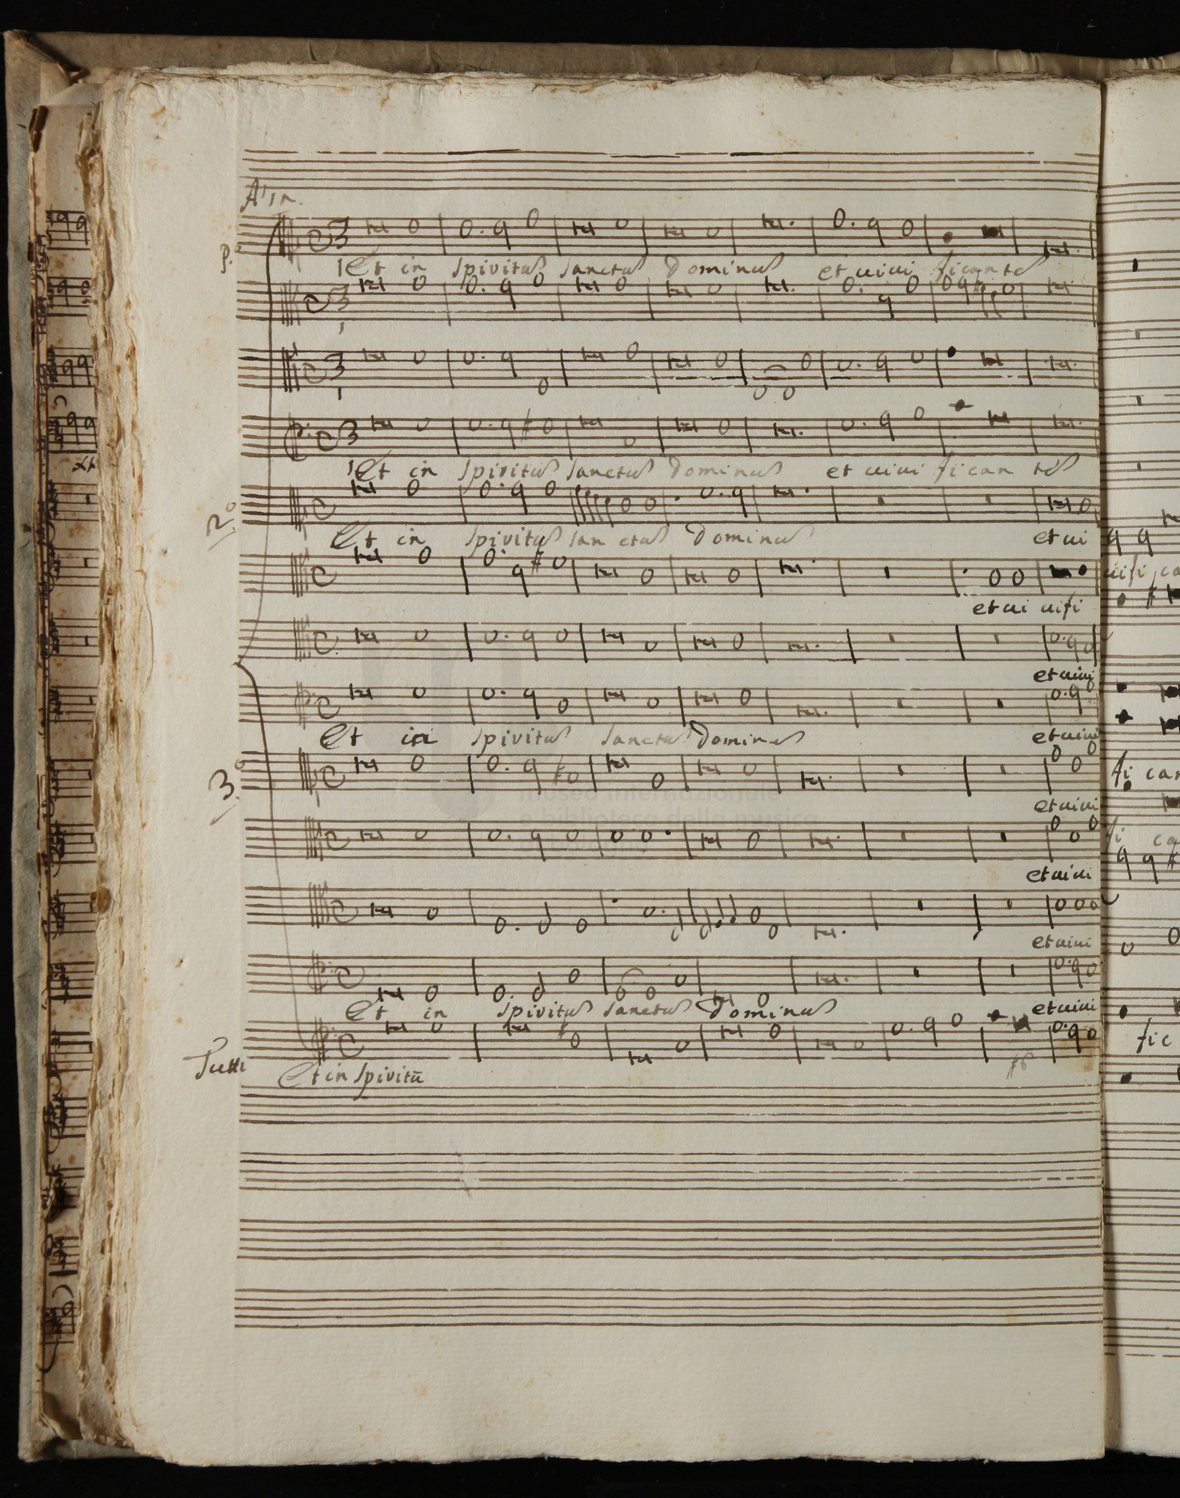 A 12.
p.º
Et in Spiritus Sanctus Dominus et uiui ficante
Et in Spiritus Sanctus Dominus et uiui fican te
2º
Et in Spiritus San ctus Dominus et ui
et ui uifi
et uiui
Et in Spiritus Sanctus Dominus et uiui
3º
et uiui
et uiui
et uiui
Et in Spiritus Sanctus Dominus et uiui
Tutti
Et in Spiritũ
museo internazionale
e biblioteca della musica
uifi ca
fi can
fi ca
fic